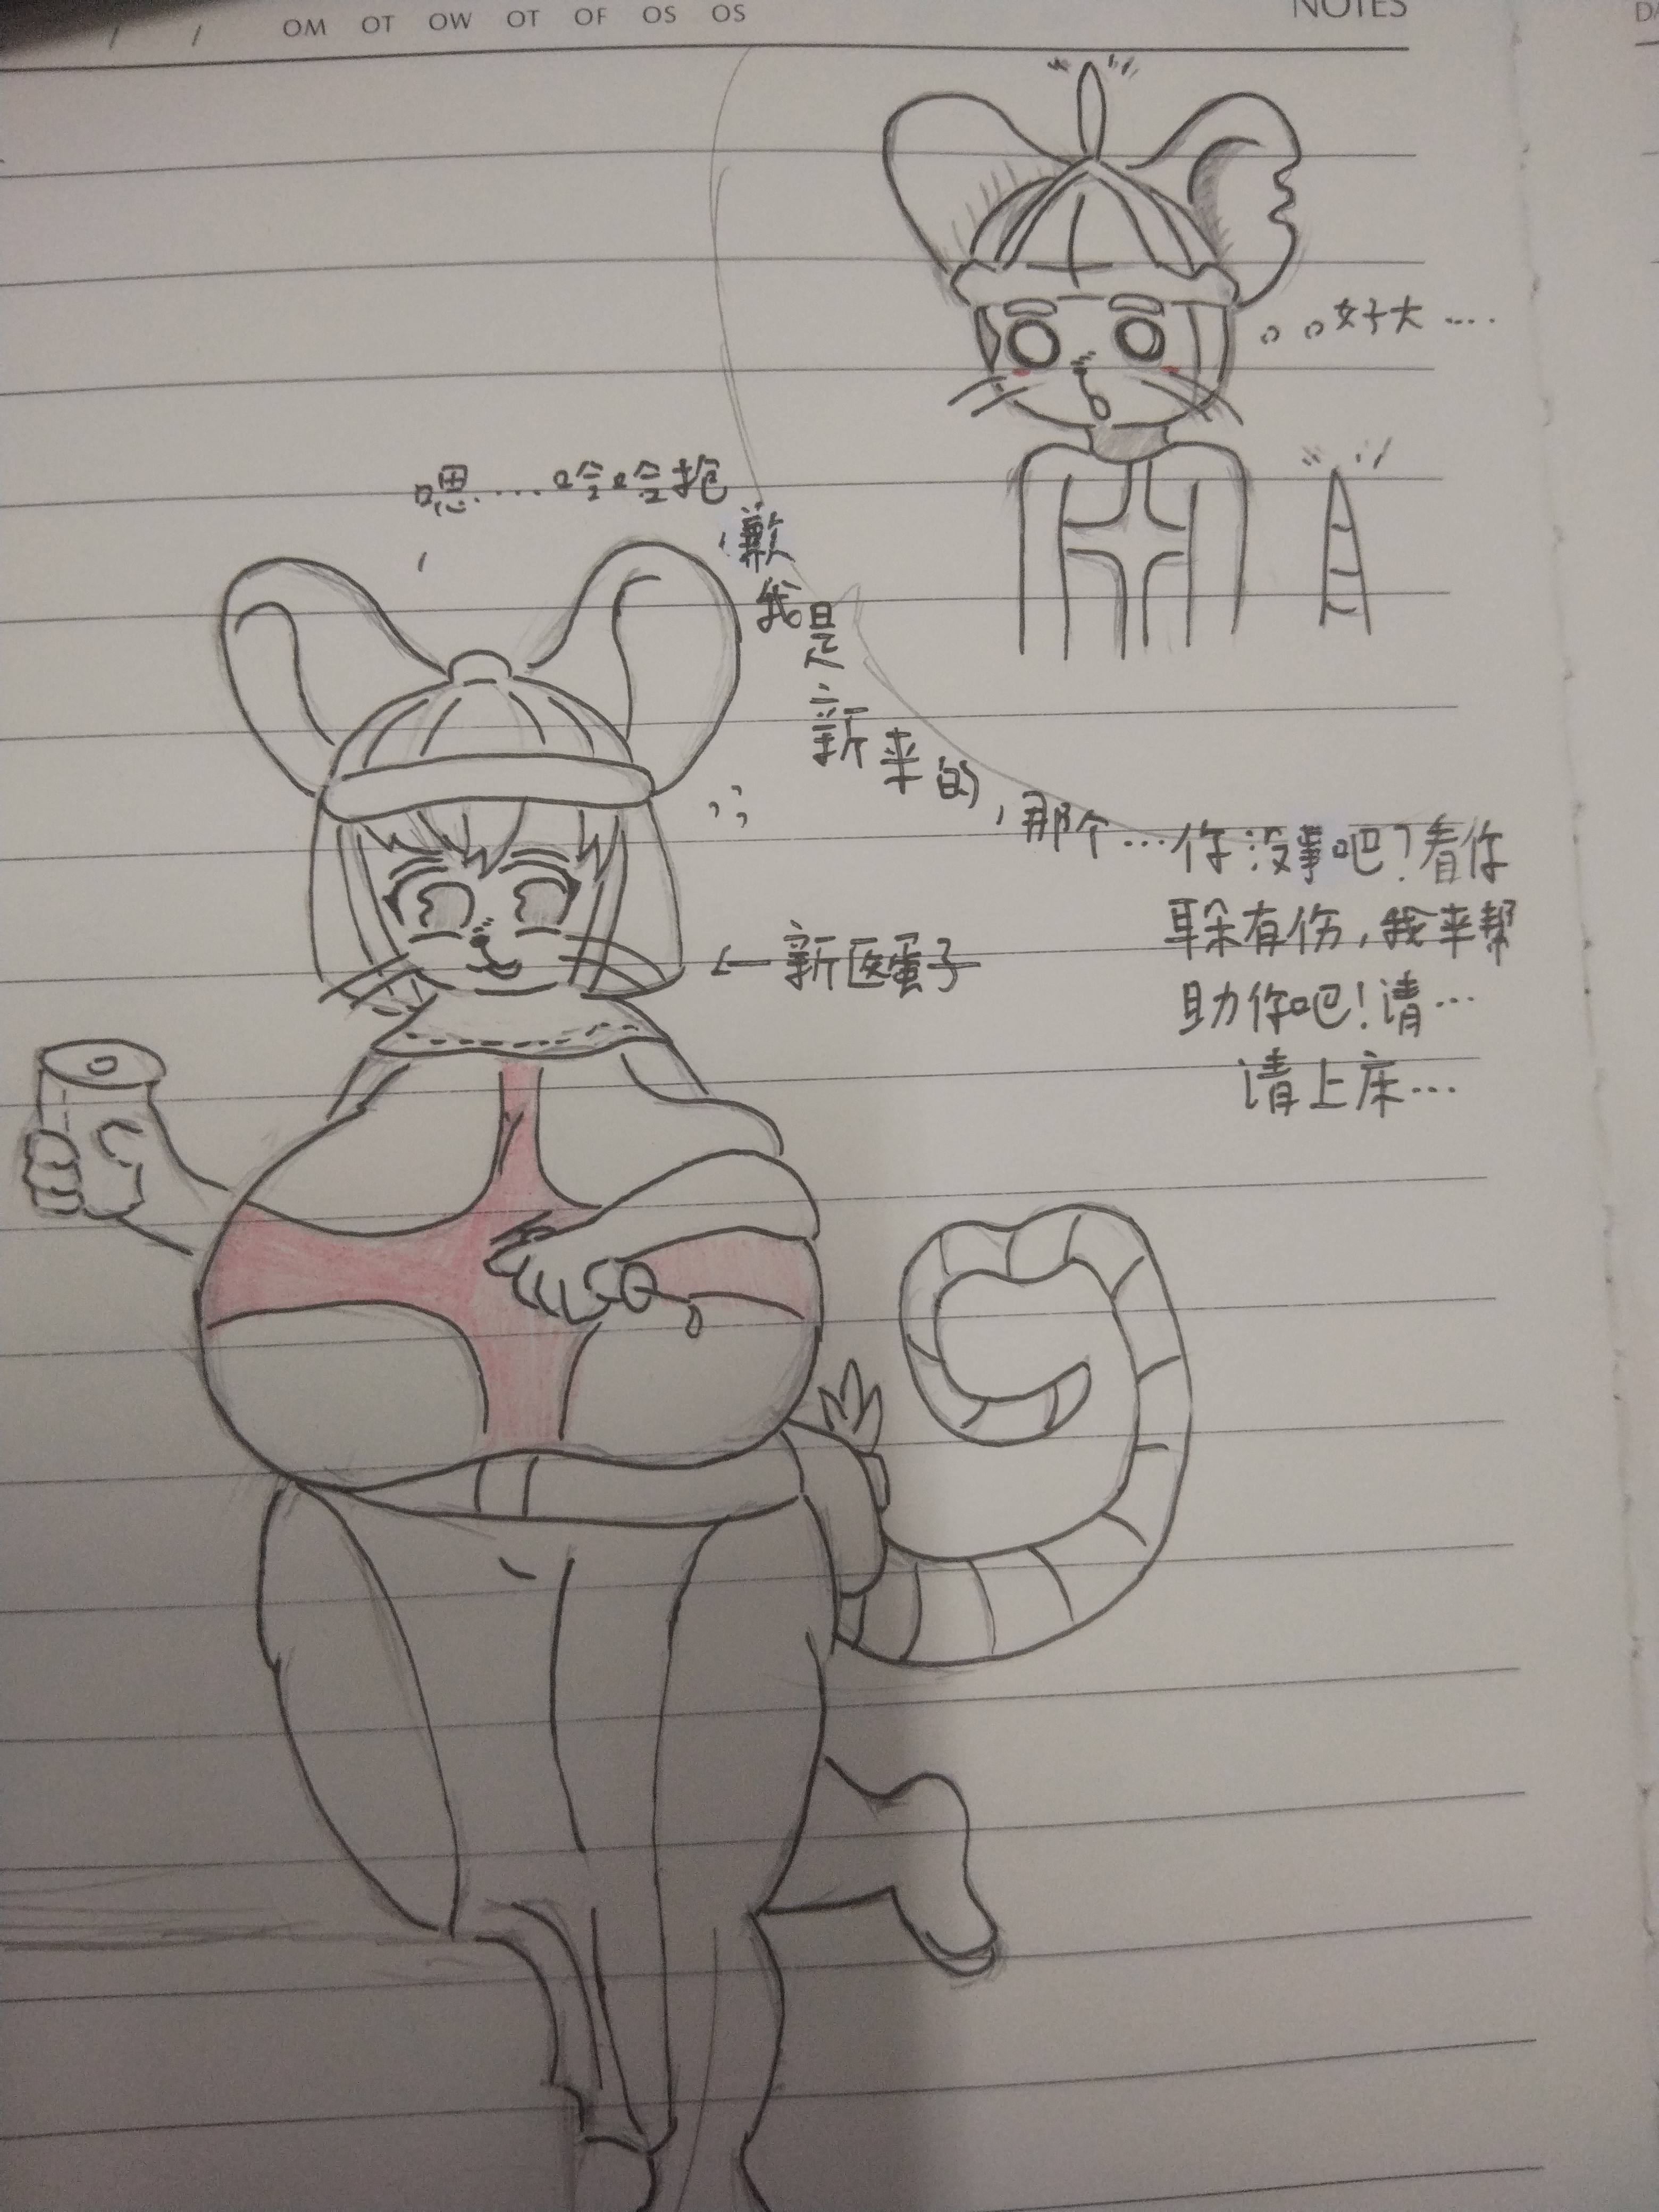 OM OT OW OT OF OS OS
NOTES
好大....
嗯....哈哈抱歉我是新来的,那个...你没事吧?看你
耳朵有伤,我来帮
助你吧!请...
请上床...
←新医蛋子